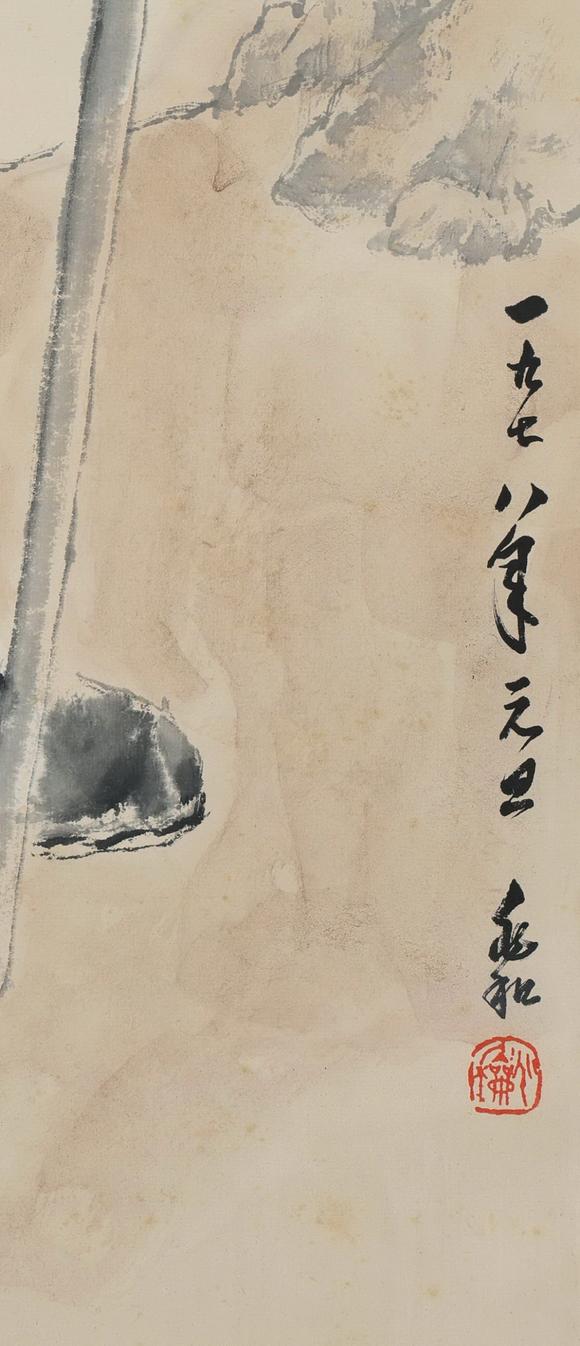 一九七八年元旦 兆和